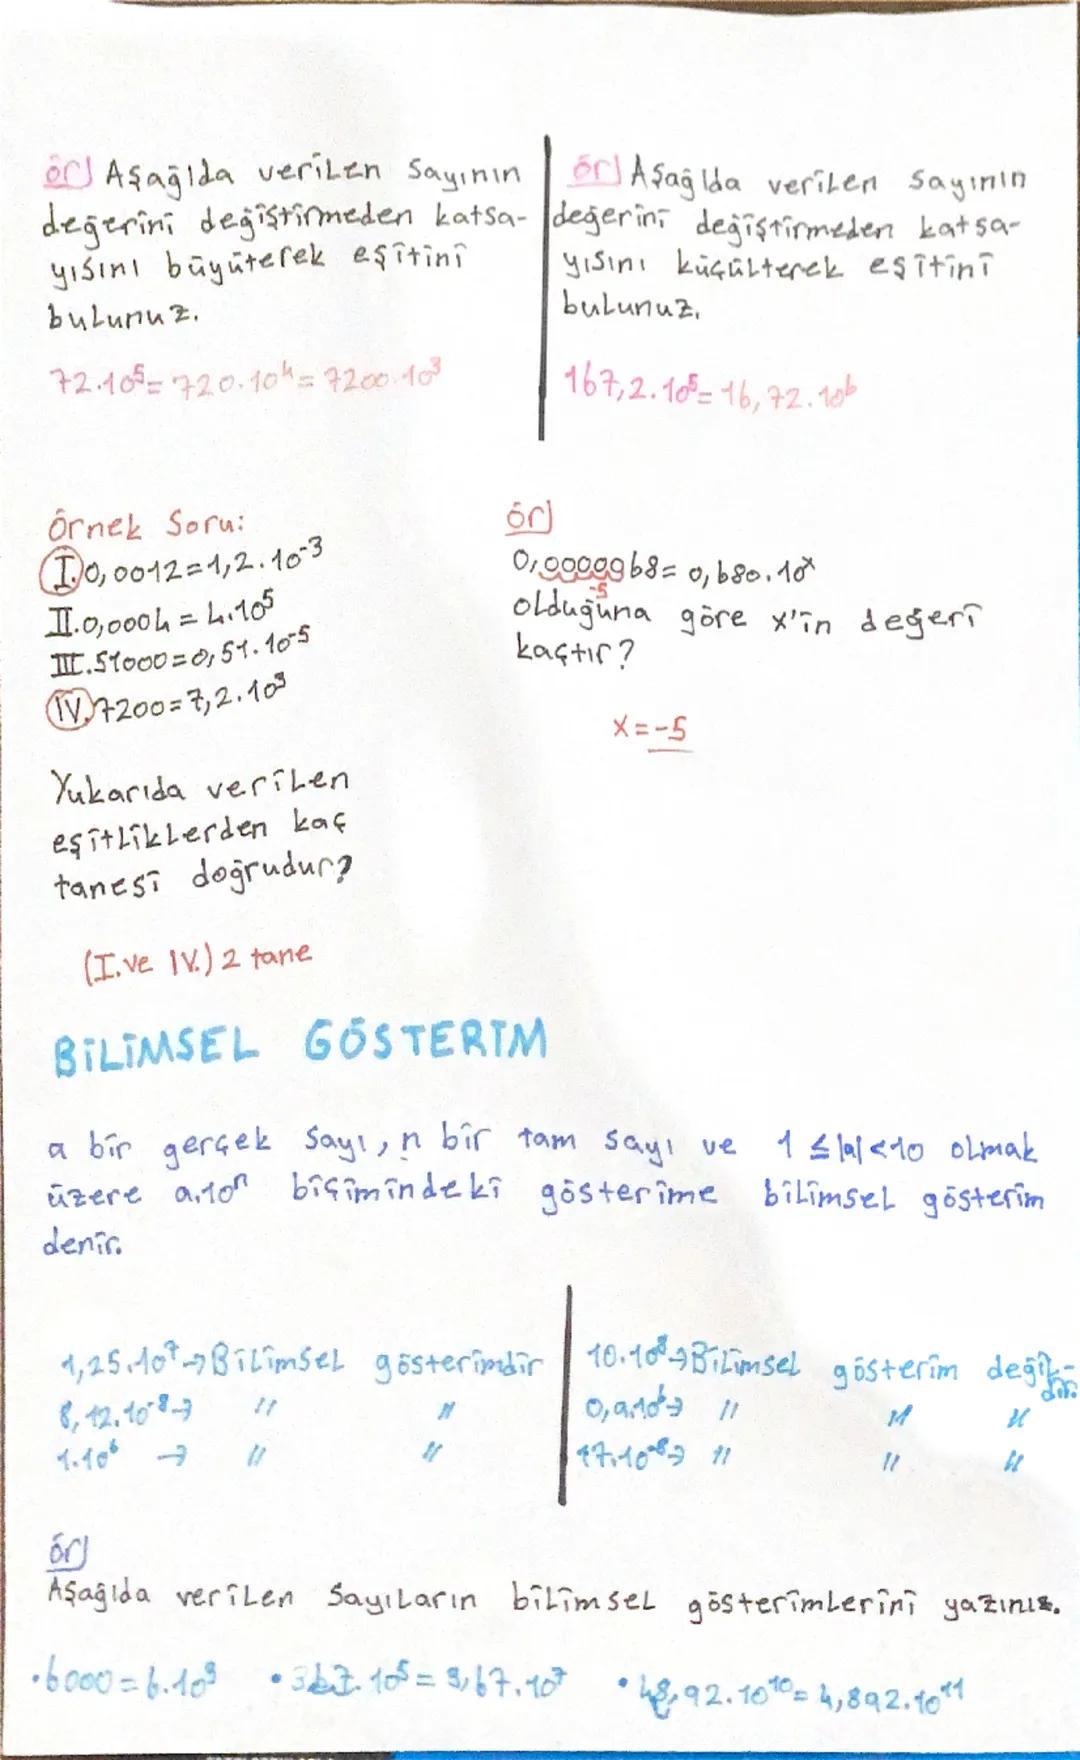 ör) Aşağıda verilen sayının
değerini değiştirmeden katsa-
yısını büyüterek eşitini
bulunuz.
72.10⁵=720.10⁴=7200.10³
ör) Aşağıda verilen sayının
değerini değiştirmeden katsa-
yısını küçülterek eşitini
bulunuz.
167,2.10⁵=16,72.10⁶
Örnek Soru:
I.0,0012=1,2.10⁻³
II.0,0004=4.10⁵
III.51000=0,51.10⁻⁵
IV.7200=7,2.10³
Yukarıda verilen
eşitliklerden kaç
tanesi doğrudur?
(I.ve IV.) 2 tane
ör)
0,0000068=0,680.10ˣ
-5
olduğuna göre x'in değeri
kaçtır?
x=-5
BİLİMSEL GÖSTERİM
a bir gerçek sayı, n bir tam sayı ve 1≤|a|<10 olmak
üzere a.10ⁿ biçimindeki gösterime bilimsel gösterim
denir.
1,25.10⁷→Bilimsel gösterimdir
8,12.10⁻⁸→ " "
1.10⁶ → " "
10.10⁸→Bilimsel gösterim değil-
dir.
0,9.10⁶→ " " "
17.10⁻⁸→ " " "
ör)
Aşağıda verilen sayıların bilimsel gösterimlerini yazınız.
•6000=6.10³ •367.10⁵=3,67.10⁷ •48,92.10¹⁰=4,892.10¹¹